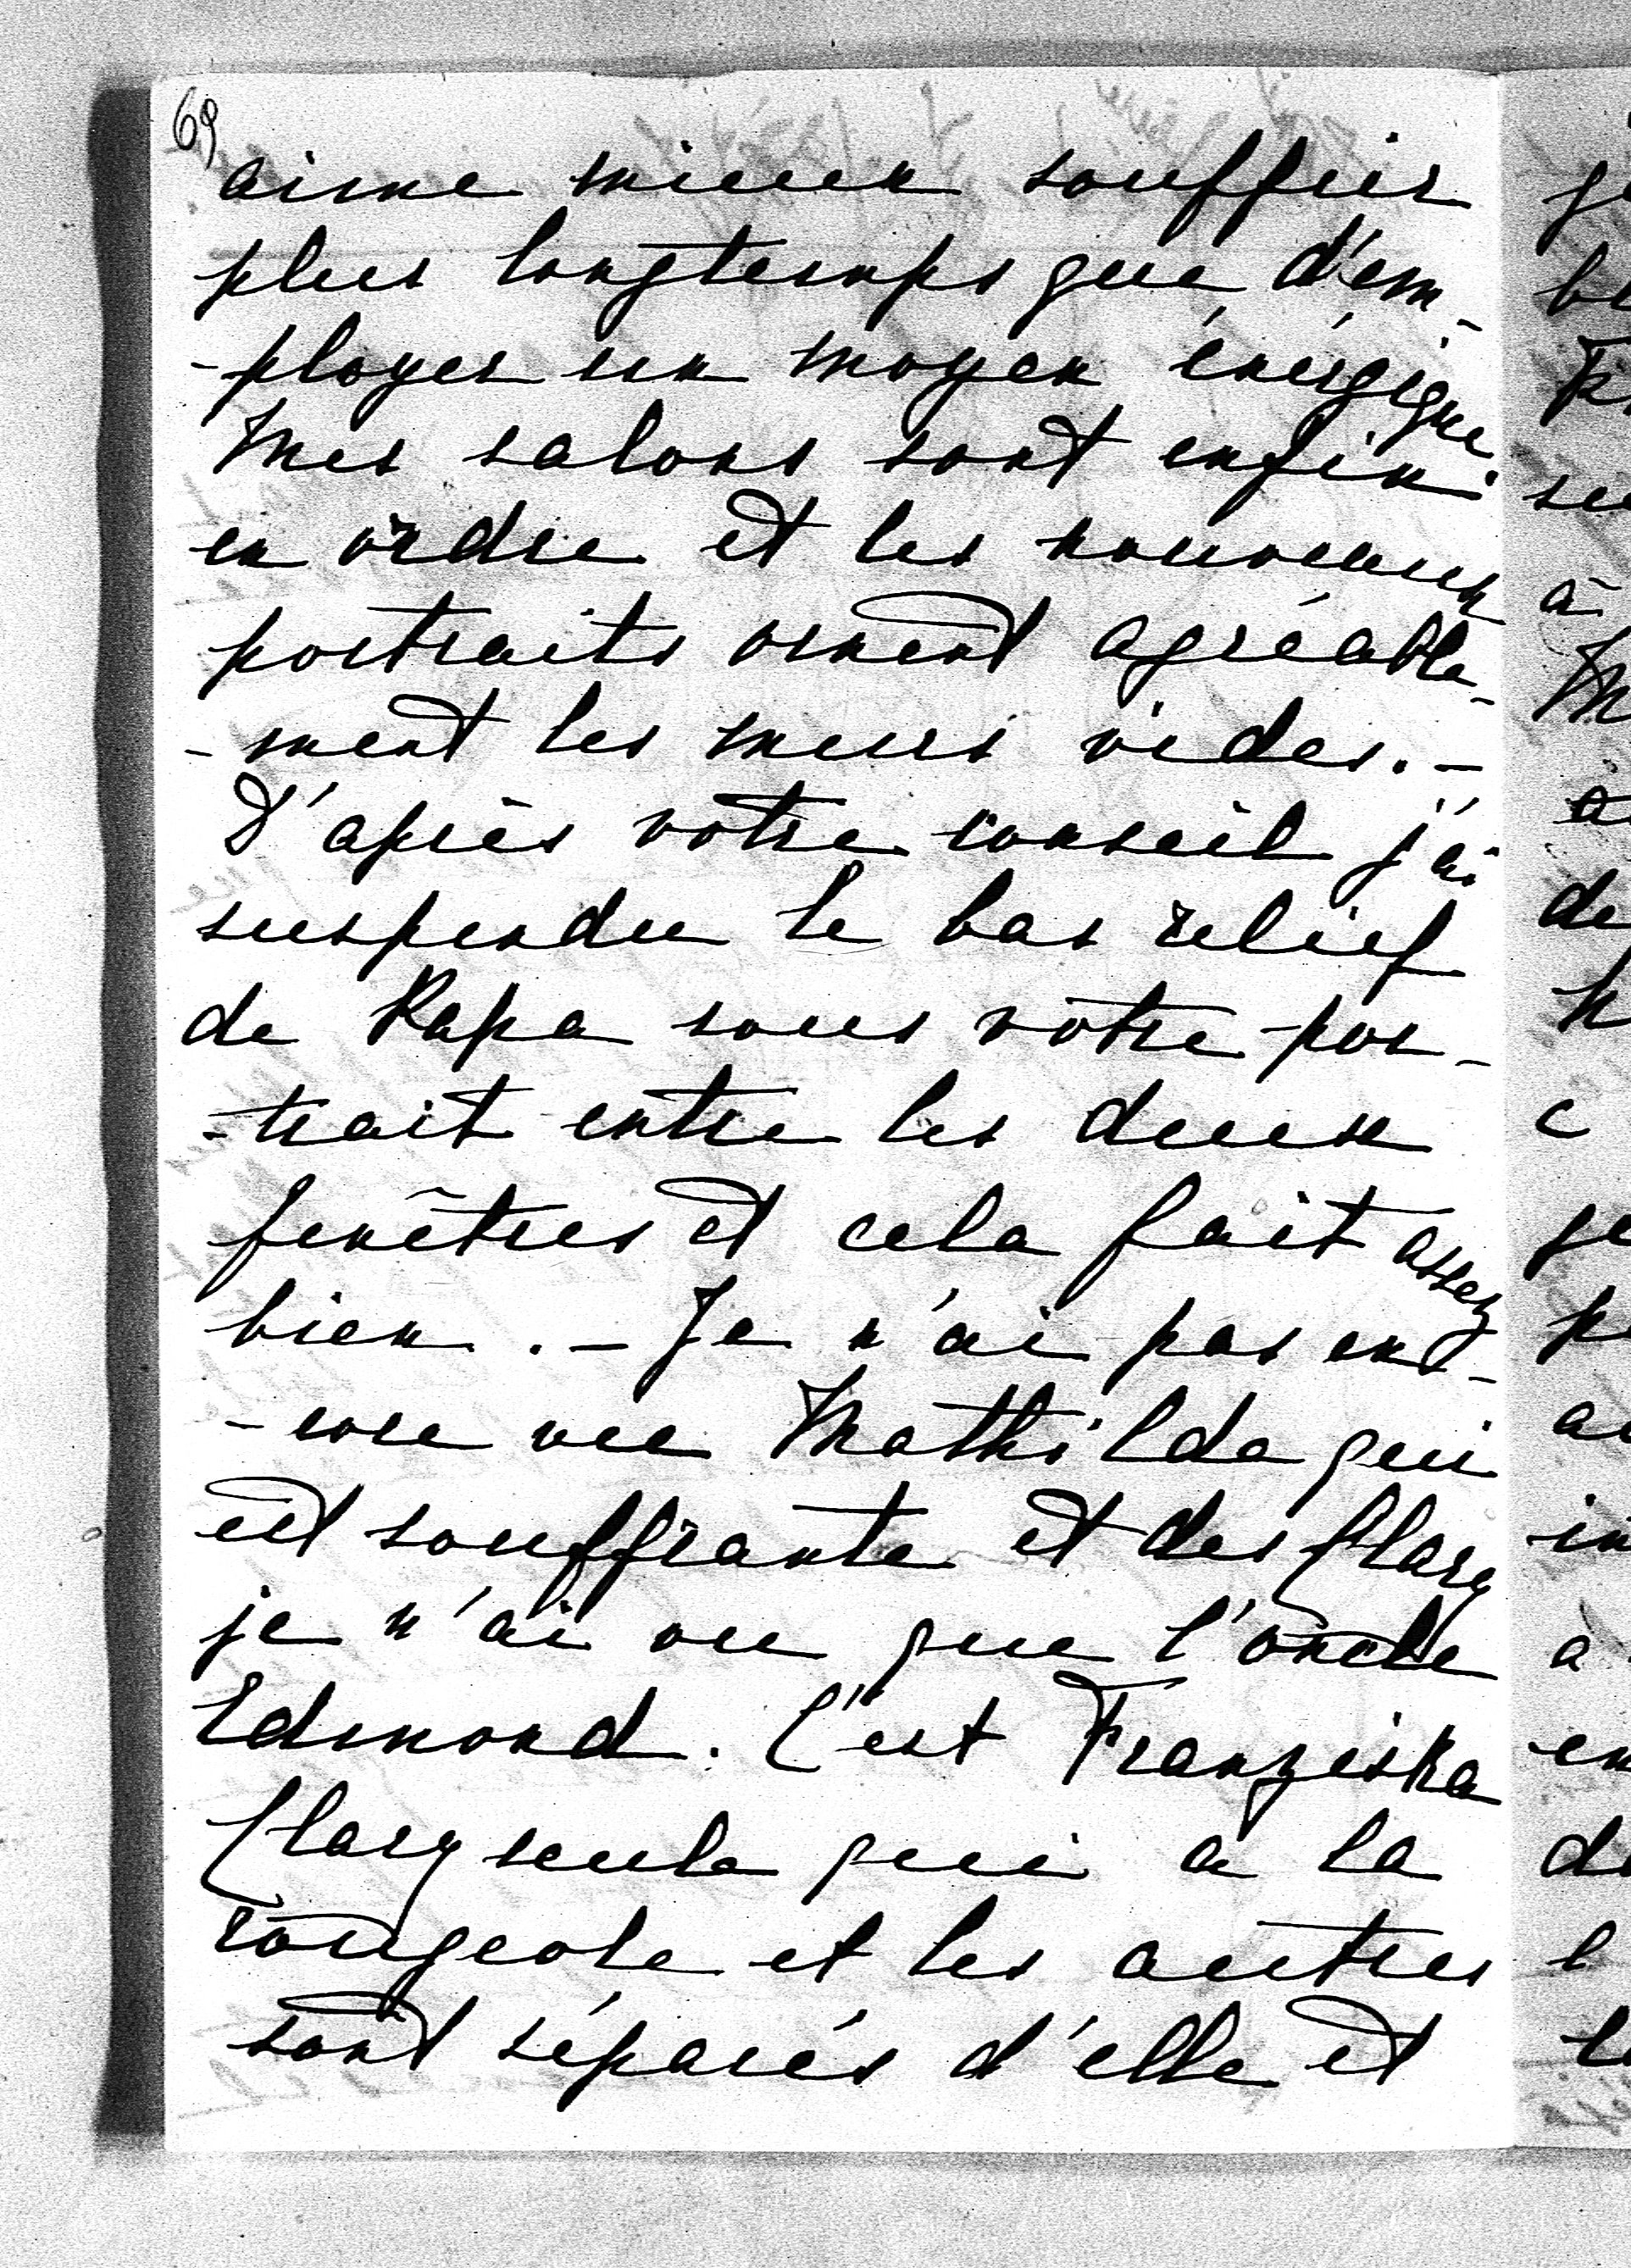 69
aime mieux souffrir
plus longtemps que d'em-
-ployer un moyen énérgique.
Mes salons sont enfin
en ordre et les nouveaux
portraits ornent agréable-
-ment les murs vides. -
D'après votre conseil j'ai
suspendu le bas relief
de Papa sous votre por-
-trait entre les deux
fenêtres et cela fait assez
bien. - Je n'ai pas en-
-core vu Mathilde qui
est souffrante et des Clary
je n'ai vu que l'oncle
Edmond. C'est Franziska
Clary seule qui a la
rougeole et les autres
sont séparés d'elle et